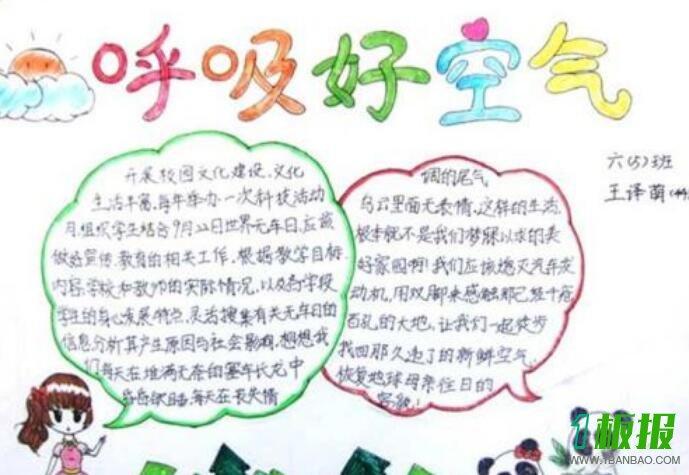 呼吸好空气
六(5)班
王译萌
开展校园文化建设,文化
生活丰富,每年举办一次科技活动
月,组织学生结合9月22日世界无车日,应该
做好宣传、教育的相关工作,根据教学目标、
内容,学校和教师的实际情况,以及各学段
学生的身心发展特点,灵活搜集有关无车日的
信息分析其产生原因与社会影响,想想我
们每天在堆满无奈的塞车长龙中
昏昏欲睡,每天在表情
调的尾气
乌云里面无表情,这样的生活,
根本就不是我们梦寐以求的美
好家园啊!我们应该熄灭汽车发
动机,用双脚来感触那已经千疮
百孔的大地,让我们一起徒步
找回那久违了的新鲜空气,
恢复地球母亲往日的
容貌!
板报
WWW.1BANBAO.COM